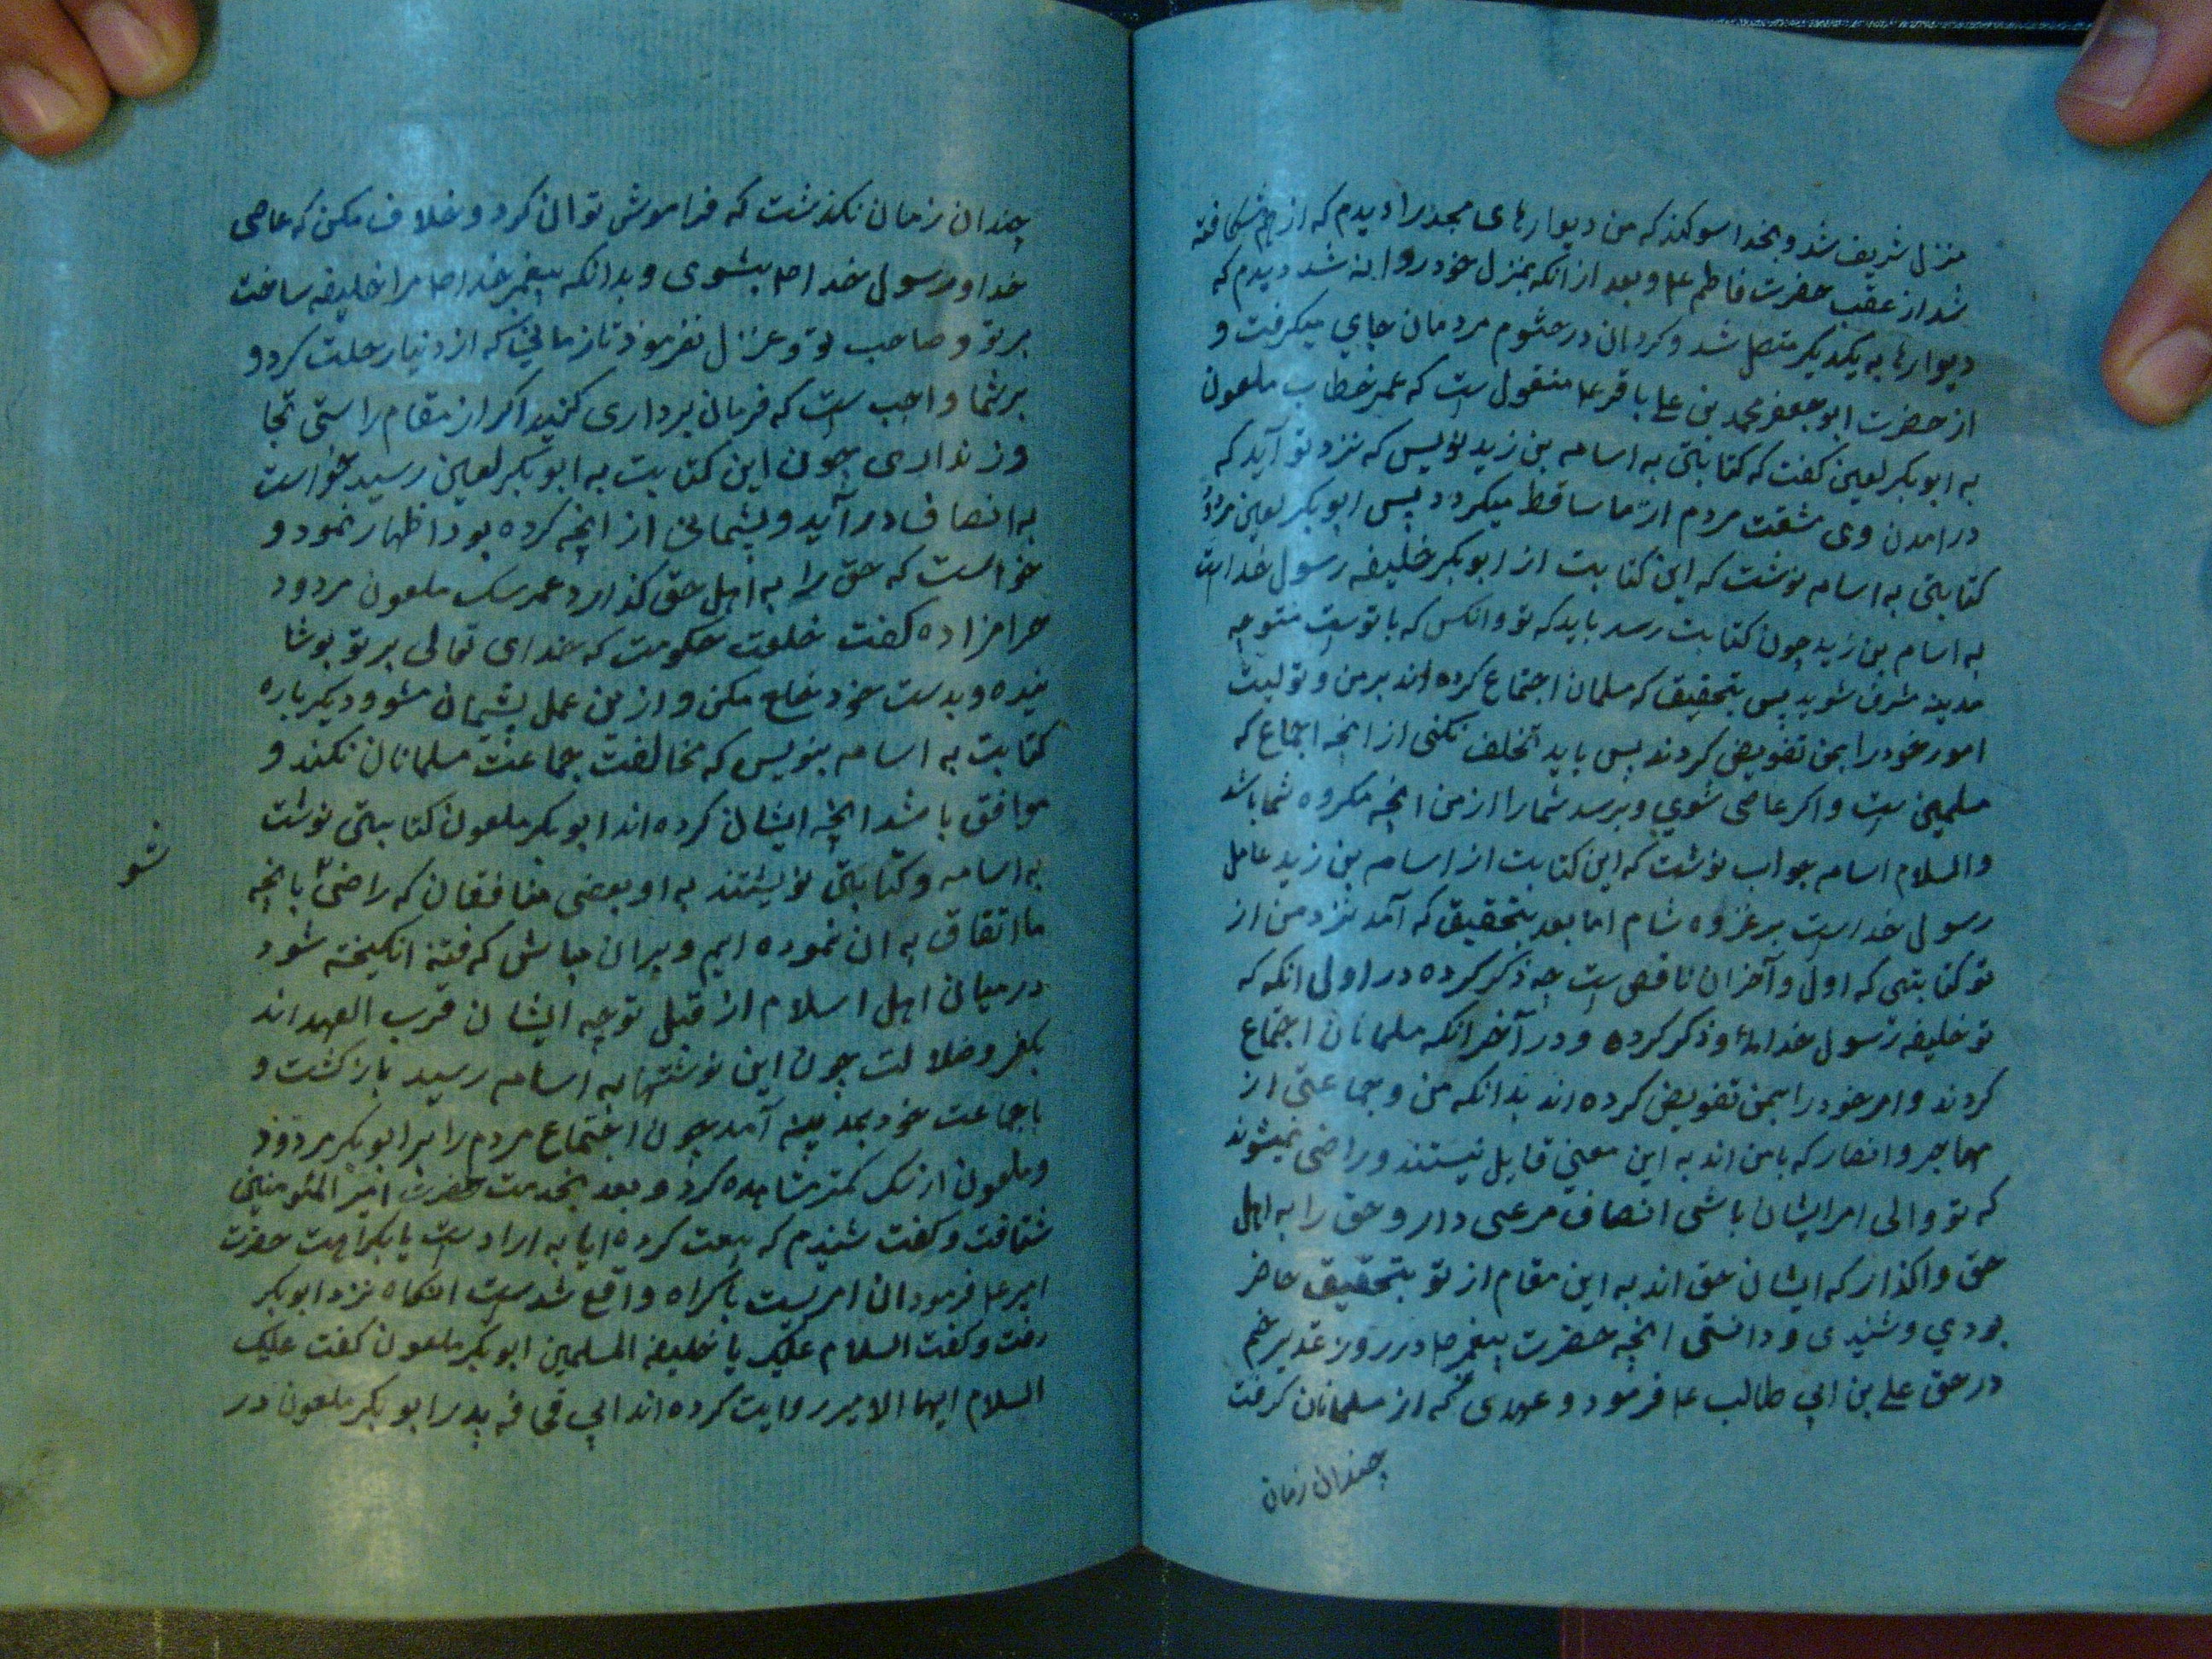 منزل شریف شد و بخدا سوکند که من دیوارهای مسجد را دیدم که از هم شکافته
شد از عقب حضرت فاطمه ع و بعد از انکه بمنزل خود روانه شد دیدم که
دیوارها به یکدیکر متصل شد و کرد ان در حشوم مردمان جای میکرفت و
از حضرت ابو جعفر محمد بن علی باقر ع منقول ست که عمر خطاب ملعون
به ابوبکر لعین کفت که کتابتی به اسامه بن زید نویس که نزد تو آید که
در امدن وی مشقت مردم از ما ساقط میکردد پس ابوبکر لعین مردود
کتابتی به اسامه نوشت که این کتابت از ابوبکر خلیفه رسول خداست
به اسامه بن زید چون کتابت رسد باید که تو و انکس که با توست متوجه
مدینه مشرف شوید پس بتحقیق که مسلمان اجتماع کرده اند بر من و تولیت
امور خود را بمن تفویض کردند پس باید تخلف نکنی از انچه اجماع که
مسلمین ست و اکر عاصی شوی و برسد شما را از من انچه مکروه شما باشد
والسلام اسامه جواب نوشت که این کتابت از اسامه بن زید عامل
رسول خداست بر غزوه شام اما بعد بتحقیق که آمد نزد من از
تو کتابتی که اول و آخر ان ناقص ست چه ذکر کرده در اول انکه که
تو خلیفه رسول خدا و ذکر کرده و در آخر انکه مسلمانان اجتماع
کردند و امر خود را بمن تفویض کرده اند بدانکه من و جماعتی از
مهاجر و انصار که با من اند به این معنی قایل نیستند و راضی نمیشوند
که تو والی امر ایشان باشی انصاف مرعی دار و حق را به اهل
حق واکذار که ایشان حق اند به این مقام از تو بتحقیق حاضر
بودی و شنیدی و دانستی انچه حضرت پیغمبر ص در روز غدیر خم
در حق علی بن ابی طالب ع فرمود و عهدی که از مسلمانان کرفت
چندان زمان
چندان زمان نکذشت که فراموش توان کرد و خلاف مکن که عاصی
خدا و رسول خدا ص بشوی و بدانکه پیغمبر خدا ص مرا خلیفه ساخت
بر تو و صاحب تو و عزل نفرموذ تا زمانی که از دنیا رحلت کرد و
بر شما واجب ست که فرمان برداری کنید اکر از مقام راستی تجا
وز نداری چون این کتابت به ابوبکر لعین رسید خواست
به انصاف در آید و پشمانی از انچه کرده بود اظهار نمود و
خواست که حق را به اهل حق کذارد عمر سک ملعون مردود
حرامزاده کفت خلعت حکومت که خدای تعالی بر تو پوشا
نیده و بدست خود خلع مکن و ازین عمل پشیمان مشو و دیکر باره
کتابت به اسامه بنویس که مخالفت جماعت مسلمانان نکند و
موافق باشد انچه ایشان کرده اند ابوبکر ملعون کتابتی نوشت
به اسامه و کتابتی نویشتند به او بعضی منافقان که راضی بانچه
شو
ما اتفاق به ان نموده ایم و بران مباش که فتنه انکیخته شود
در میان اهل اسلام از قبل توچه ایشان قرب العهد اند
بکفر و ضلالت چون این نوشتها به اسامه رسید بازکشت و
با جماعت خود بمدینه آمد چون اجتماع مردم را بر ابوبکر مردود
و ملعون از سک کمتر مشاهده کرد و بعد بخدمت حضرت امیر المئومنین
شتافت و کفت شنیدم که بیعت کرده ایا به ارادست یا بکراهت حضرت
امیر ع فرمود ان امریست باکراه واقع شدست انکاه نزد ابوبکر
رفت و کفت السلام علیک یا خلیفه المسلمین ابوبکر ملعون کفت علیک
السلام ایها الامیر روایت کرده اند ابی قحافه پدر ابوبکر ملعون در